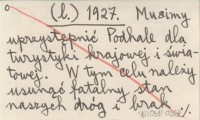 (l.) 1927. Musimy
uprzystępnić Podhale dla
turystyki krajowej i świa-
towej. W tym celu należy
usunąć fatalny stan
naszych dróg i brak